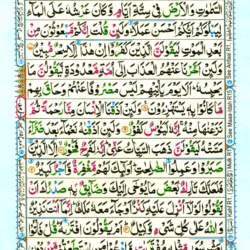 السَّمٰوٰتِ وَالْاَرْضَ فِيْ سِتَّةِ اَيَّامٍ وَّكَانَ عَرْشُهٗ عَلَى الْمَآءِ
لِيَبْلُوَكُمْ اَيُّكُمْ اَحْسَنُ عَمَلًا وَلَئِنْ قُلْتَ اِنَّكُمْ مَّبْعُوْثُوْنَ مِنْۢ
بَعْدِ الْمَوْتِ لَيَقُوْلَنَّ الَّذِيْنَ كَفَرُوْٓا اِنْ هٰذَآ اِلَّا سِحْرٌ مُّبِيْنٌ
وَلَئِنْ اَخَّرْنَا عَنْهُمُ الْعَذَابَ اِلٰٓى اُمَّةٍ مَّعْدُوْدَةٍ لَّيَقُوْلُنَّ مَا
يَحْبِسُهٗ اَلَا يَوْمَ يَاْتِيْهِمْ لَيْسَ مَصْرُوْفًا عَنْهُمْ وَحَاقَ بِهِمْ
مَّا كَانُوْا بِهٖ يَسْتَهْزِءُوْنَ وَلَئِنْ اَذَقْنَا الْاِنْسَانَ مِنَّا رَحْمَةً ثُمَّ
نَزَعْنٰهَا مِنْهُ اِنَّهٗ لَيَئُوْسٌ كَفُوْرٌ وَلَئِنْ اَذَقْنٰهُ نَعْمَآءَ بَعْدَ ضَرَّآءَ
مَسَّتْهُ لَيَقُوْلَنَّ ذَهَبَ السَّيِّاٰتُ عَنِّيْ اِنَّهٗ لَفَرِحٌ فَخُوْرٌ اِلَّا الَّذِيْنَ
صَبَرُوْا وَعَمِلُوا الصّٰلِحٰتِ اُولٰٓئِكَ لَهُمْ مَّغْفِرَةٌ وَّاَجْرٌ كَبِيْرٌ
فَلَعَلَّكَ تَارِكٌۢ بَعْضَ مَا يُوْحٰٓى اِلَيْكَ وَضَآئِقٌۢ بِهٖ صَدْرُكَ اَنْ
يَّقُوْلُوْا لَوْلَآ اُنْزِلَ عَلَيْهِ كَنْزٌ اَوْ جَآءَ مَعَهٗ مَلَكٌ اِنَّمَآ اَنْتَ نَذِيْرٌ
وَاللّٰهُ عَلٰى كُلِّ شَيْءٍ وَّكِيْلٌ اَمْ يَقُوْلُوْنَ افْتَرٰىهُ قُلْ فَاْتُوْا